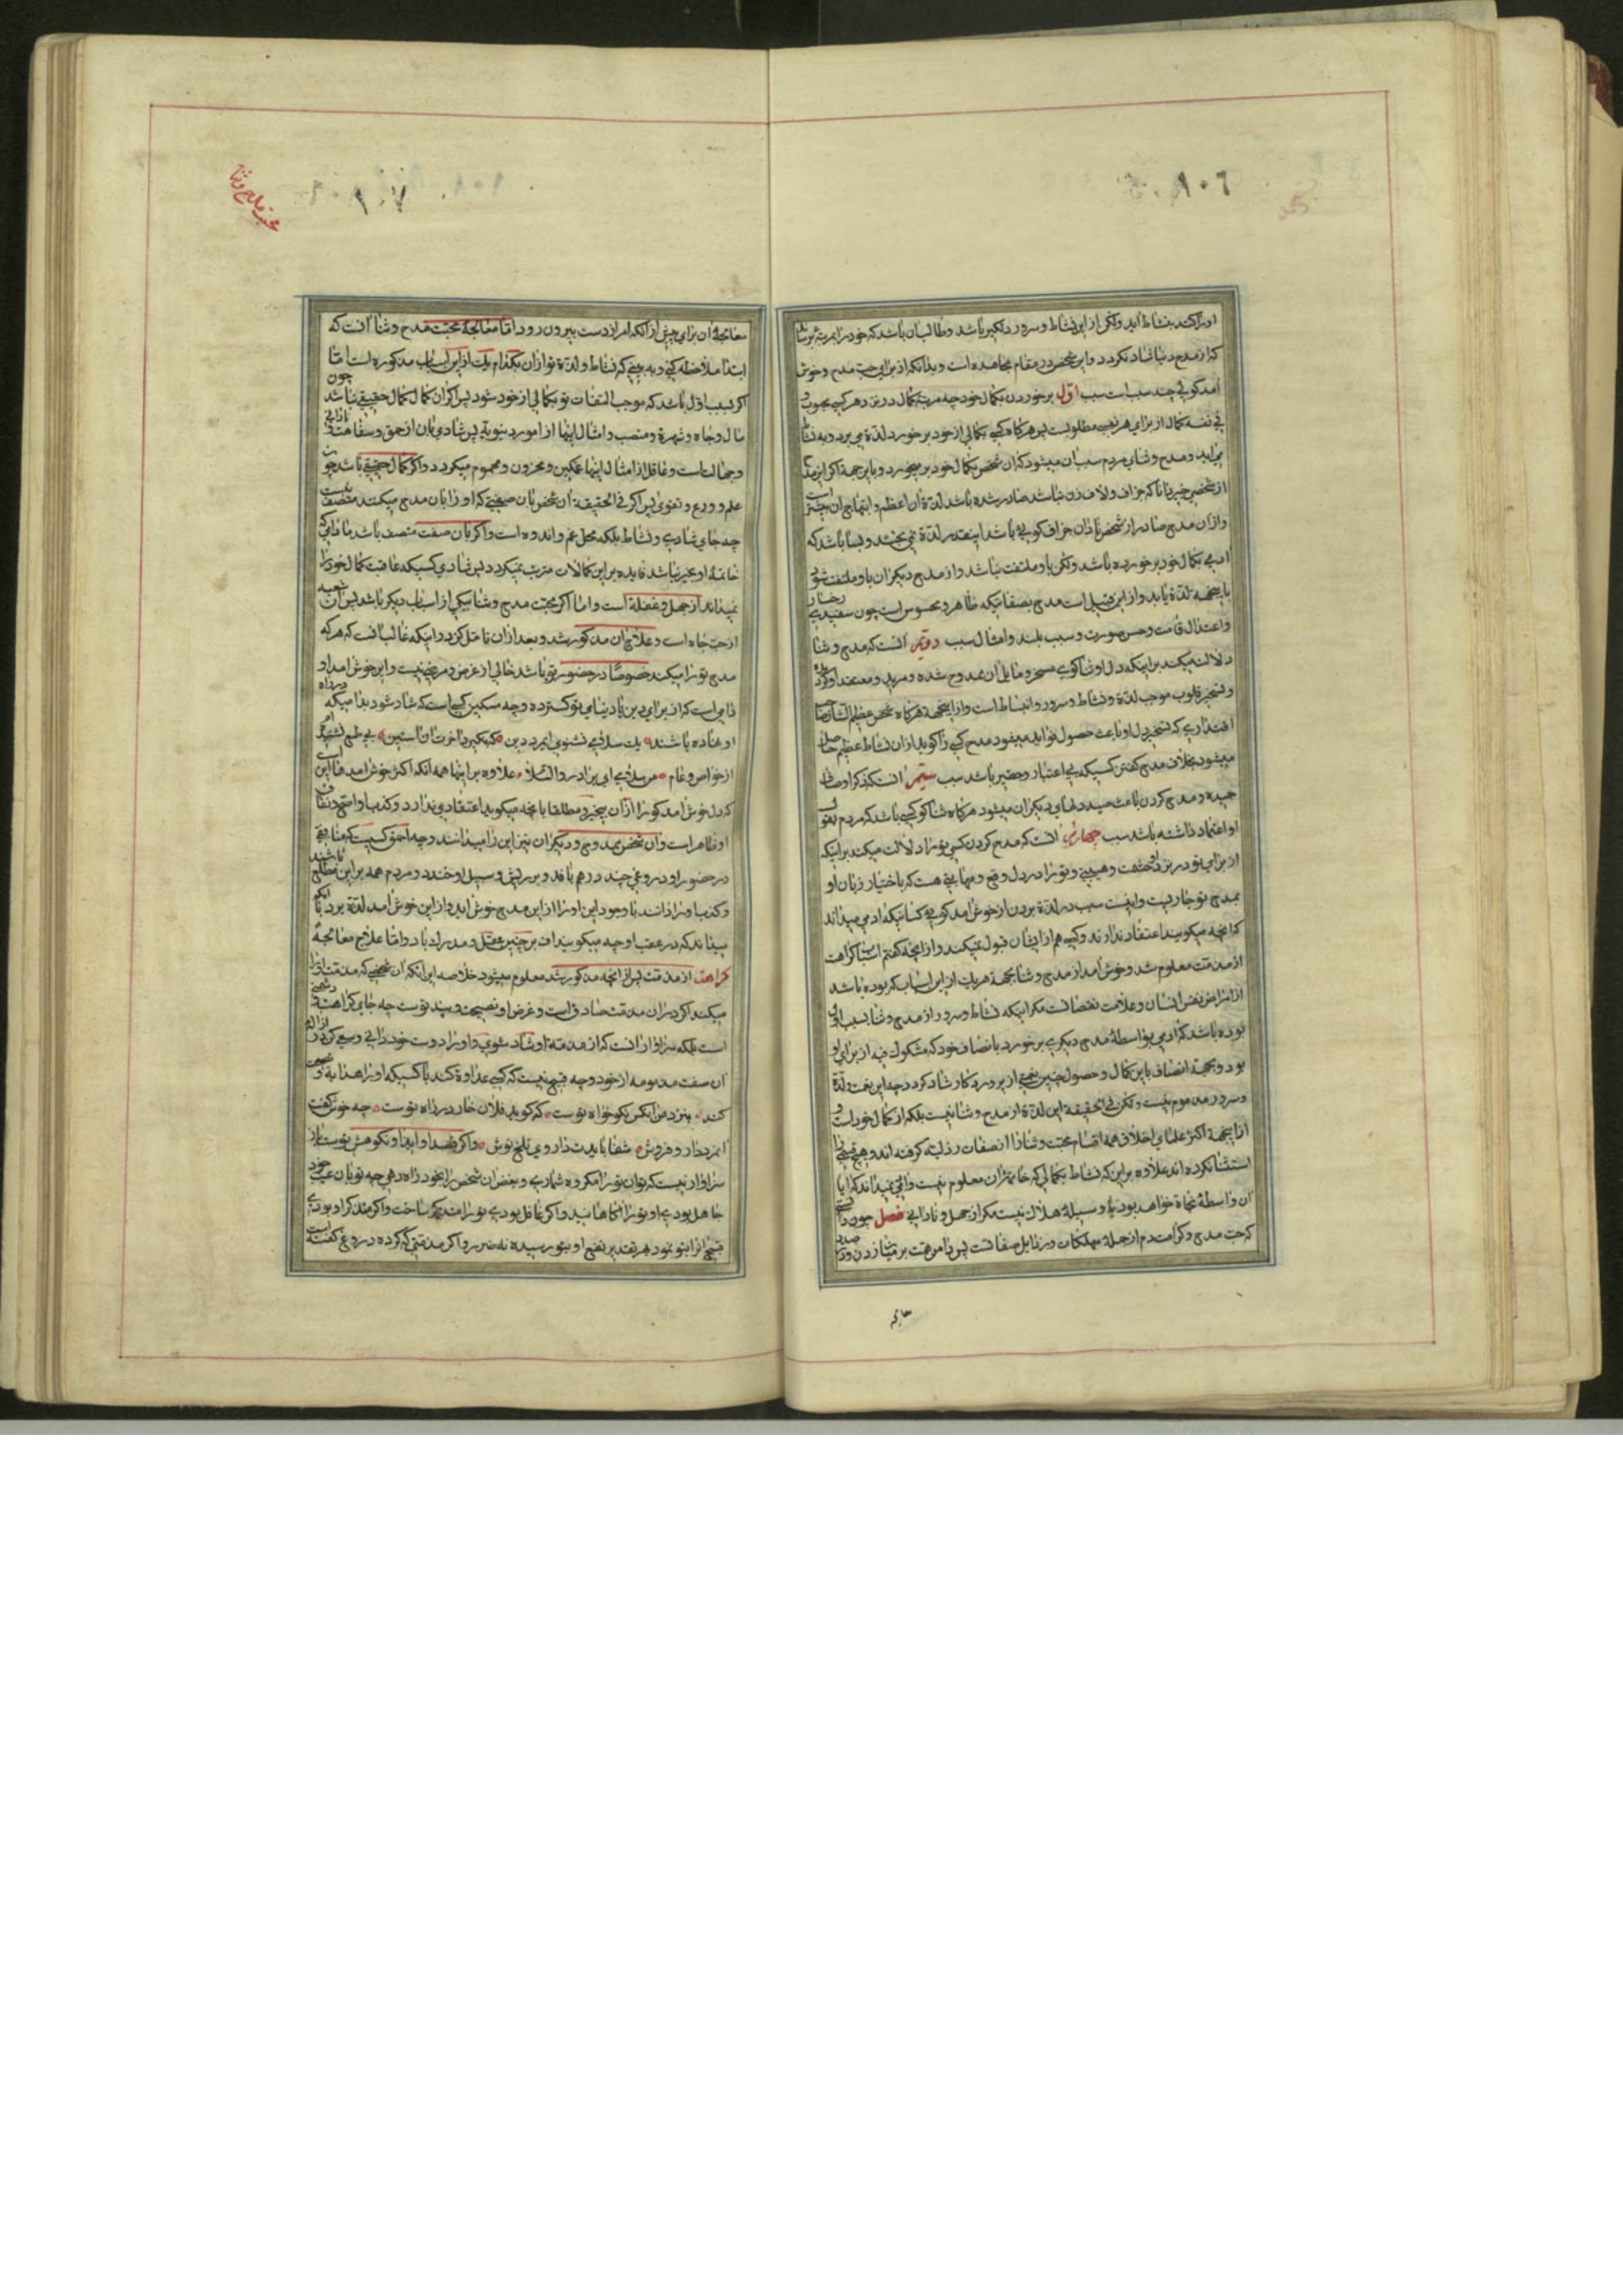 ٨٠٦
او را کند بنشاط اید ولکن از این نشاط و سرور دلکیر باشد و طالب ان باشد که خود را بمرتبهٔ برساند
که از مدح دنیا شاد نکردد و این شخص در مقام مجاهده است و بدانکه از برای حب مدح و خوش
آمد کوئی چند سبب است سبب اوّل برخوردن بکمال خود چه مرتبهٔ کمال در نزد هر کسی محبوب و
فی نفسه کمال از برای هر نفسی مطلوبست پس هرکاه کسی بکمالی از خود برخورد لذّة می برد و به نشاط
می اید و مدح و ثنای مردم سبب ان میشود که ان شخص بکمال خود بر میخورد و باین جهة اکر این مدح
از شخص خبیر دانا که جزاف و لاف زن نباشد صادر شده باشد لذّة ان اعظم و ابتهاج ان بیشتر است
و از ان مدح صادر از شخص نادان جزاف کوئی باشد اینقدر لذّة نمی بخشد و بسا باشد که
ادمی بکمال خود بر خورده باشد ولکن باو ملتفت نباشد و از مدح دیکران باو ملتفت شود
باینجهة لذّة یابد و از این قبیل است مدح بصفاتیکه ظاهر و محسوس است چون سفیدی رخسار
و اعتدال قامت و حسن صورت و سبب بلند و امثال سبب دویّم انست که مدح و ثنا
دلالت میکند بر اینکه دل او ثناکوی مسخر و مایل ان ممدوح شده و مرید و معتقد او کردیده
و تسخیر قلوب موجب لذّة و نشاط و سرور و انبساط است و از اینجهة هرکاه شخص عظیم الشان صاحب
اقتداری که تسخیر دل او باعث حصول فواید میشود مدح کسی را کوید از ان نشاط عظیم حاصل
میشود بخلاف مدح کفتن کسیکه بی اعتبار و حقیر باشد سبب سیّم انست که ذکر اوصاف
حمیده و مدح کردن باعث صید دلهای دیکران میشود هرکاه ثناکو کسی باشد که مردم بقول
او اعتماد داشته باشد سبب چهارم انست که مدح کردن کسی تو را دلالت میکند بر اینکه
از برای تو در نزد او حشمت و هیبتی و تو را در دل وقع و مهابتی هست که باختیار زبان او
بمدح تو جاریست و اینست سبب در لذّة بردن از خوش امد کوئی کسانیکه ادمی میداند
که انچه میکویند اعتقاد ندارند و کسی هم از ایشان قبول نمیکند و از انچه کفتم اسباب کراهت
از مذمّت معلوم شد و خوش امد از مدح و ثنا بجهة هریک از این اسباب که بوده باشد
از امراض نفس انسان و علامت نقصانست مکر اینکه نشاط و سرور از مدح و ثنا بسبب اول
بوده باشد که ادمی بواسطهٔ مدح دیکری بر خورد باتصاف خود که مشکوک فیه از برای او
بود و بجهة اتصاف باین کمال و حصول چنین نعمتی از پروردکار شاد کردد چه این بهجت و لذّة
و سرور مذموم نیست ولکن فی الحقیقة این لذّة از مدح و ثنا نیست بلکه از کمال خود است و
از اینجهة اکثر علمای اخلاق همه اقسام محبّت و ثنا را از صفات رذیله کرفته اند و هیچ قسمی را
استثنا نکرده اند علاوه بر این که نشاط بکمالی که خاتمهٔ ان معلوم نیست و ادمی نمیداند که ایا
ان واسطهٔ نجاة خواهد بود یا وسیلهٔ هلاک نیست مکر از جهل و نادانی فصل چون دانستی
که حبّ مدح و کراهت ذم از جملهٔ مهلکات و رذایل صفاتست پس دامن همّت بر میان زدن و در صدد
معالجه
محبّت مدح و ثنا
٨٠٧
معالجهٔ ان برای پیش از آنکه امر از دست بیرون رود امّا معالجهٔ محبّت مدح و ثنا آنست که
ابتدا ملاحظه کنی و به بینی که نشاط و لذّة تو از ان بکدام یک از این اسباب مذکوره است امّا
اکر بسبب اوّل باشد که موجب التفات تو بکمالی از خود شود پس اکر ان کمال کمال حقیقی نباشد چون
مال و جاه و شهرة و منصب و امثال اینها از امور دنیویة پس شادی بان از حمق و سفاهت و نادانی
و جهالت است و عاقل از امثال اینها غمکین و محزون و مهموم میکردد و اکر کمال حقیقی باشد چون
علم و ورع و تقوی پس اکر فی الحقیقه ان شخص بان صفتی که او را بان مدح میکنند متصف نیست
چه جای شادی و نشاط بلکه محل غم و اندوه است و اکر بان صفت متصف باشد مادامی که
خاتمهٔ او بخیر نباشد فایده بر این کمالات مترتب نمیکردد پس شادی کسیکه عاقبت کمال خود را
نمیداند از جهل و غفلة است و امّا اکر محبّت مدح و ثنا بیکی از اسباب دیکر باشد پس ان شعبه
از حبّ جاه است و علاج ان مذکور شد و بعد از ان تامّل کردد اینکه غالب انست که هرکه
مدح تو را میکند خصوصًا در حضور تو باشد خالی از غرض و مرضی نیست و این خوش امد او
دامی است که از برای دین یا دنیای تو کسترده و چه مسکین کسی است که شاد شود بدامیکه در راه
او نهاده باشند یک سلامی نشنوی ایمرد دین که نکیرد اخرت ان آستین بی طمع نشنیدم
از خواص و عام من سلامی ای برادر والسّلام علاوه بر اینها همه انکه اکثر خوش امدها این است
که دل خوش امدکو را از ان بیخبر و مطلقا بانچه میکوید اعتقادی ندارد و کذب او واضح و نفاق
او ظاهر است و ان شخص ممدوح و دیکران نیز این را میدانند و چه احمق کسیست که منافقی
در حضور او دروغی چند در هم بافد و بر ریش و سبیل او خندد و مردم همه بر این مطلع باشند
و کذب او را دانند با وجود این او را از این مدح خوش اید و از این خوش آمد لذّة برد با انکه
میداند که در عقب او چه میکویند اف بر چنین عقل و مدرک باد و امّا علاج معالجهٔ
کراهت از مذمّت پس از انچه مذکور شد معلوم میشود خلاصه این انکه ان شخصی که مذمّت تو را
میکند اکر در ان مذمّت صادق است و غرض او نصیحت و پند تو ست چه جای کراهت و دشمنی
است بلکه سزاوار انست که از مذمّة او شاد شوی و او را دوست خود دانی و سعی کنی در ازاله
ان صفت مذمومه از خود و چه قبیح نیست که کسی عداوة کند با کسیکه او را هدایة و نصیحت
کند بنزد من انکس نکو خواه توست که کوید فلان خار در راه توست چه خوش کفت
انمرد دارو فروش شفا بایدت داروی تلخ نوش و اکر قصد او ایذا و نکوهش توست باز
سزاوار نیست که تو ان تو را مکروه شماری و بغض ان شخص را بخود راه دهی چه تو بان عیب خود
جاهل بودی او تو را اکاهانید و اکر غافل بودی تو را متذکّر ساخت و اکر متذکّر او بودی
قبح انرا بتو نمود بهر تقدیر نفع او بتو رسیده نه ضرر و اکر مذمّتی که کرده دروغ کفته است